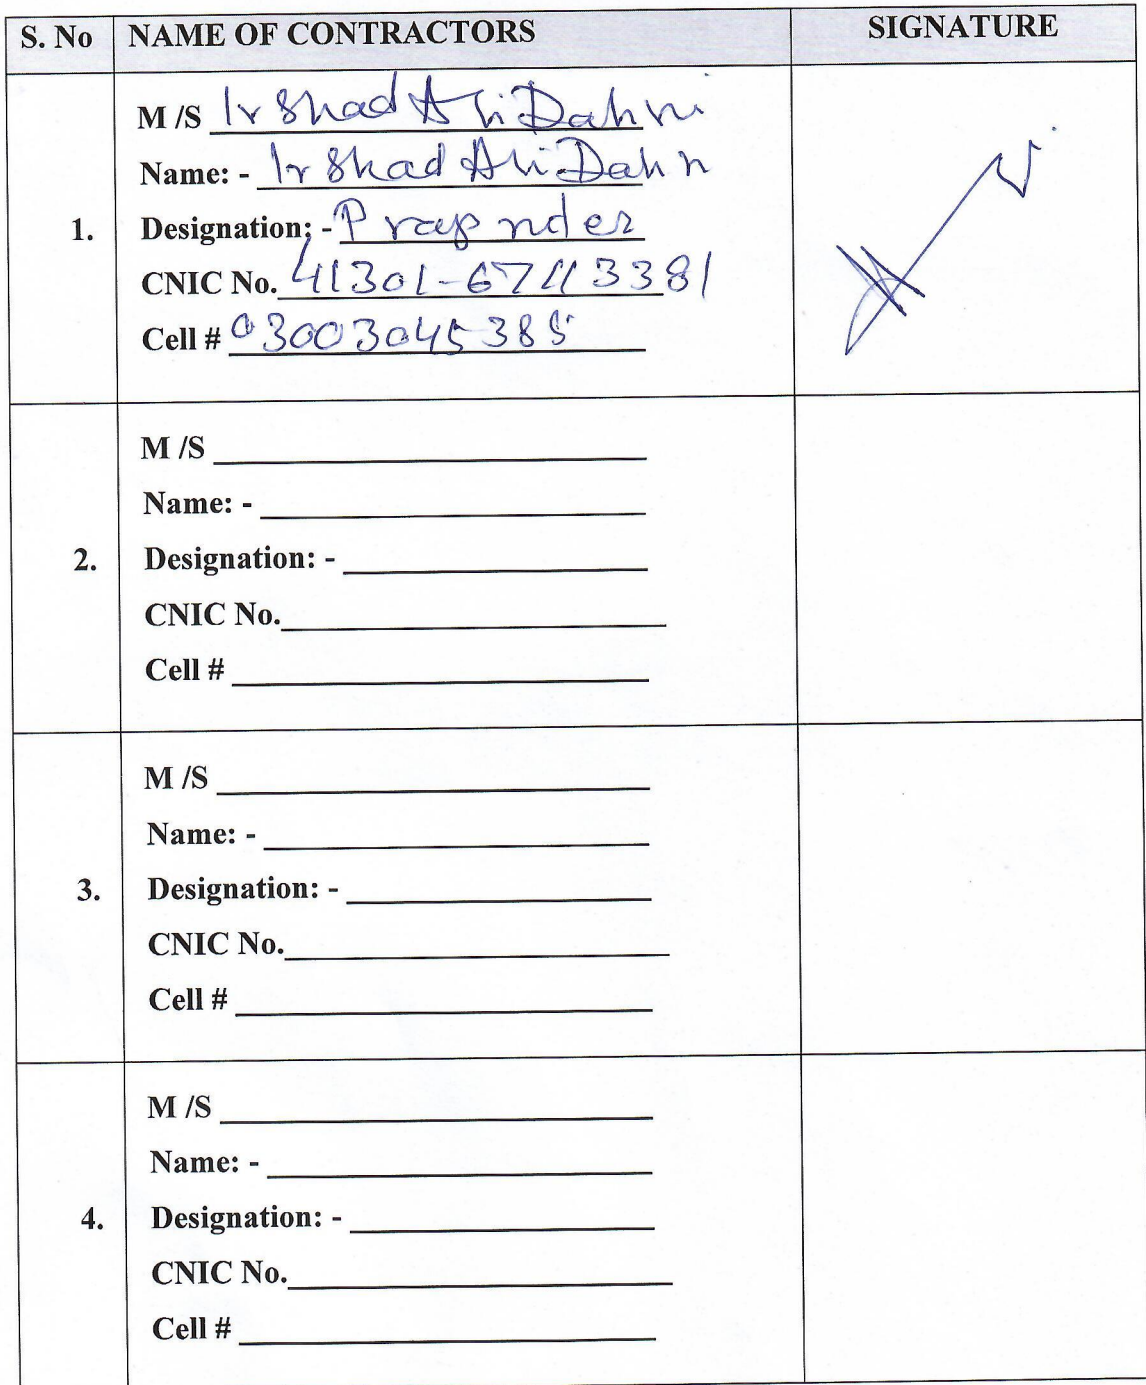 S. No NAME OF CONTRACTORS SIGNATURE
1.
M /S Irshad Ali Dahri
Name: - Irshad Ali Dahri
Designation: - Prapndes
CNIC No. 41301-67113381
Cell # 03003045385
2.
M /S
Name: -
Designation: -
CNIC No.
Cell #
3.
M /S
Name: -
Designation: -
CNIC No.
Cell #
4.
M /S
Name: -
Designation: -
CNIC No.
Cell #